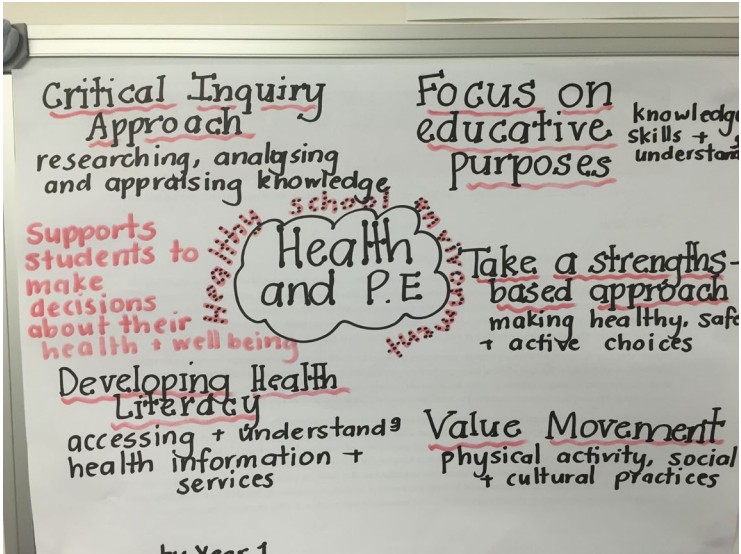 Critical Inquiry
Approach
researching, analysing
and appraising knowledge
Focus on
educative
purposes
knowledge
skills +
understand
healthy school environment
Health
and P.E
Supports
students to
make
decisions
about their
health + well being
Take a strengths-
based approach
making healthy, safe
+ active choices
Developing Health
Literacy
accessing + understandg
health information +
services
Value Movement
physical activity, social
+ cultural practices
by Year 1